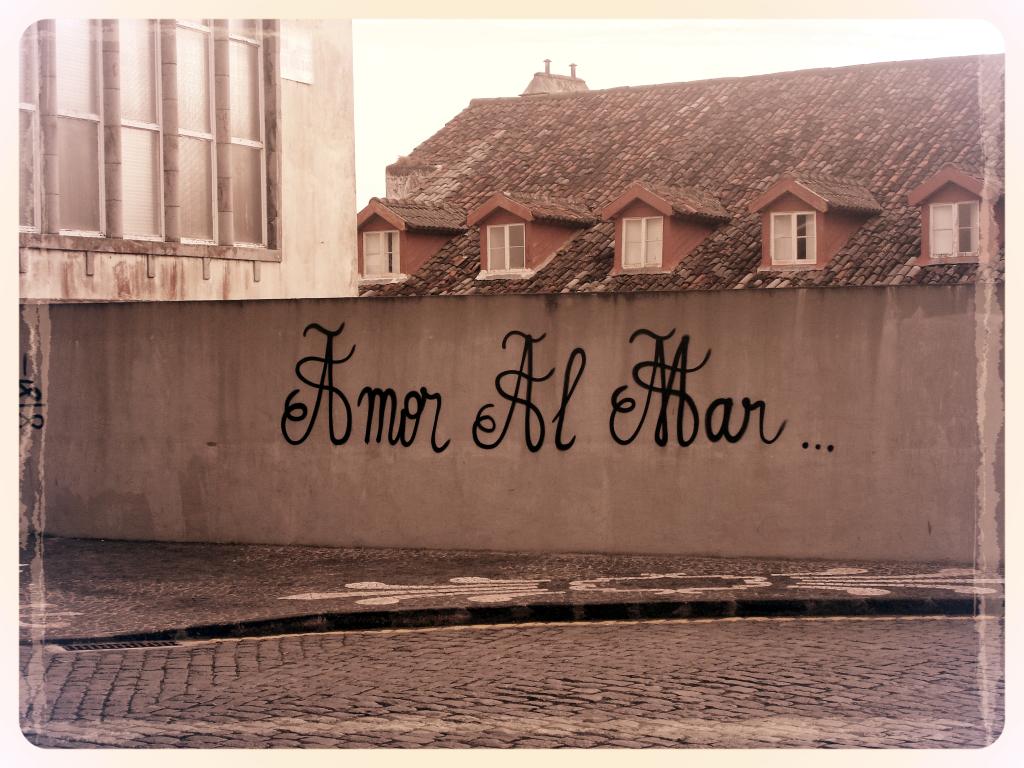 Amor Al Mar ...